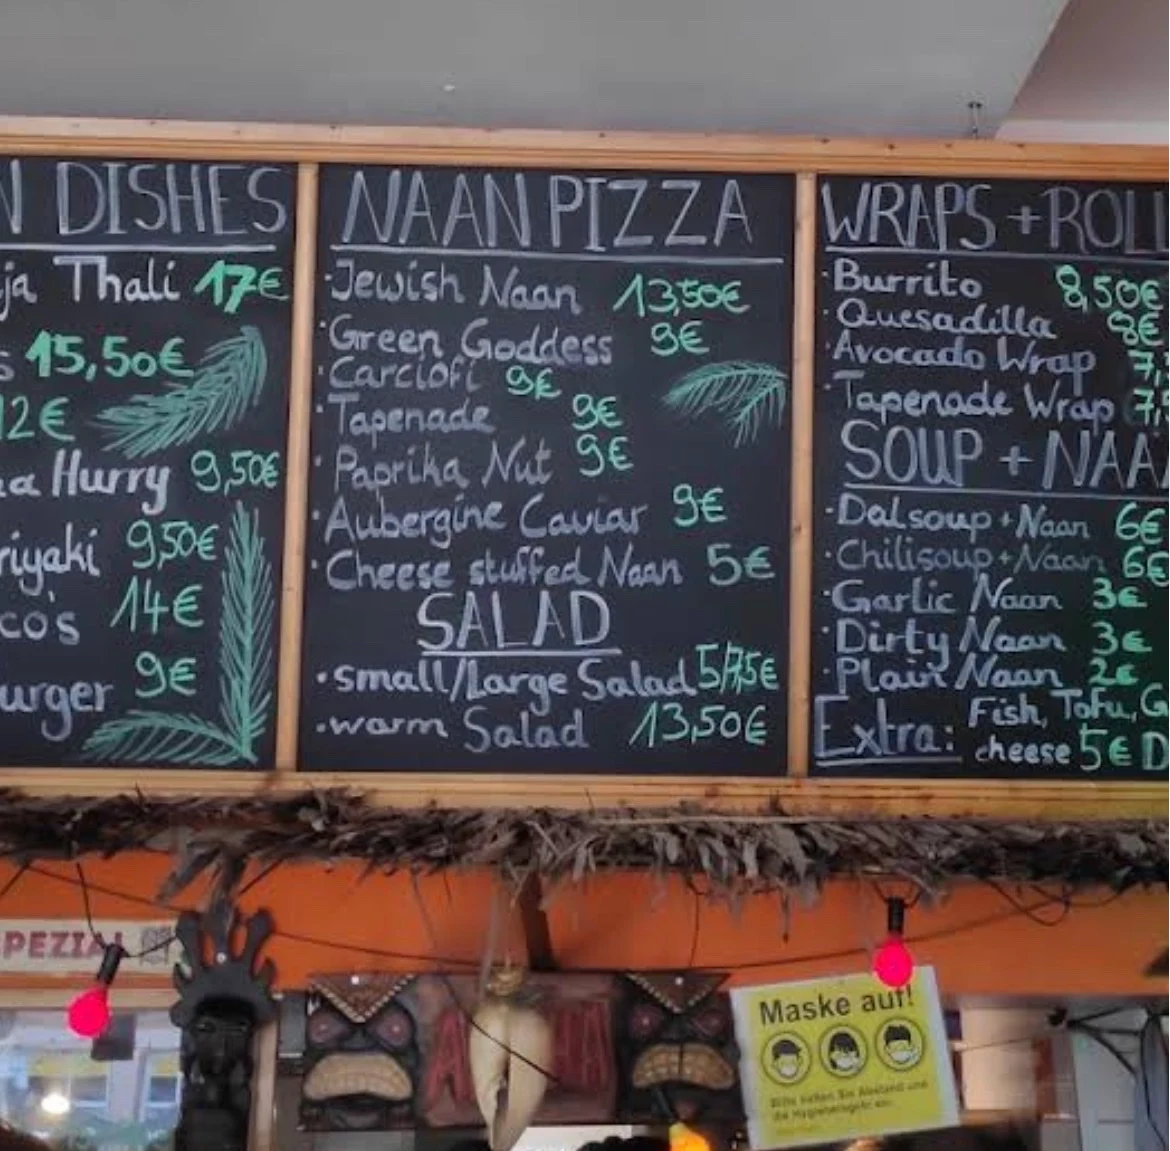 N DISHES
ja Thali 17€
s 15,50€
12€
a Hurry 9,50€
riyaki 9,50€
co's 14€
urger 9€
NAAN PIZZA
·Jewish Naan 13,50€
·Green Goddess 9€
·Carciofi 9€
·Tapenade 9€
·Paprika Nut 9€
·Aubergine Caviar 9€
·Cheese stuffed Naan 5€
SALAD
·small/Large Salad 5/7,5€
·warm Salad 13,50€
WRAPS + ROLL
·Burrito 8,50€
·Quesadilla 8€
·Avocado Wrap 7,
·Tapenade Wrap 7,
SOUP + NAA
·Dalsoup + Naan 6€
·Chilisoup + Naan 6€
·Garlic Naan 3€
·Dirty Naan 3€
·Plain Naan 2€
Extra: Fish, Tofu, G
cheese 5€ D
PEZIAL
Maske auf!
Bitte halten Sie Abstand und
die Hygieneregeln ein.